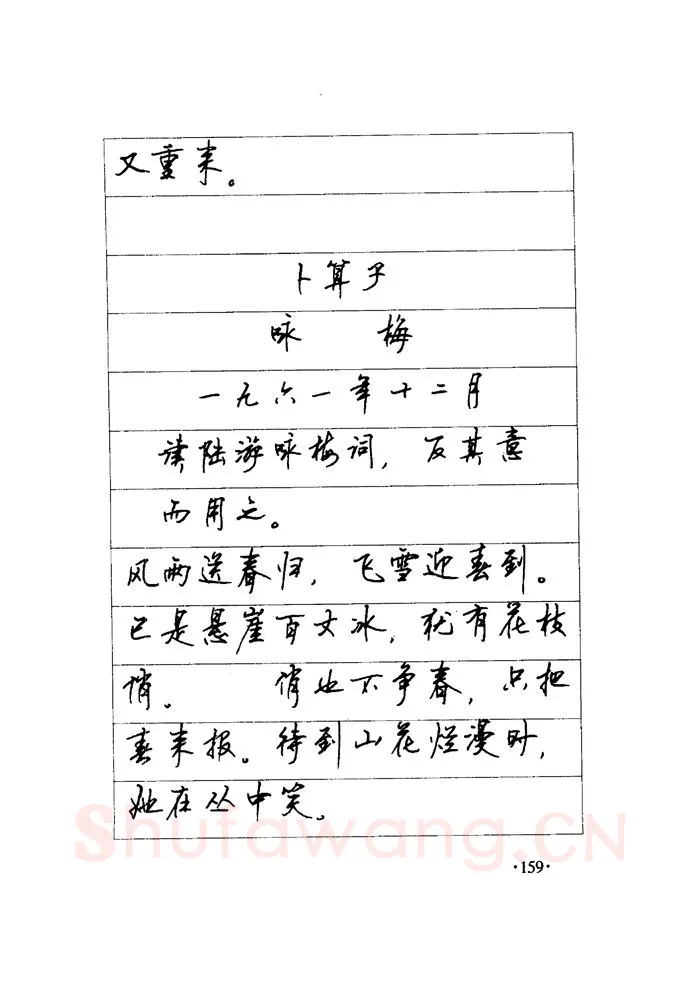 又重来。
卜算子
咏 梅
一九六一年十二月
读陆游咏梅词，反其意
而用之。
风雨送春归，飞雪迎春到。
已是悬崖百丈冰，犹有花枝
俏。 俏也不争春，只把
春来报。待到山花烂漫时，
她在丛中笑。
Shufawang.CN
·159·